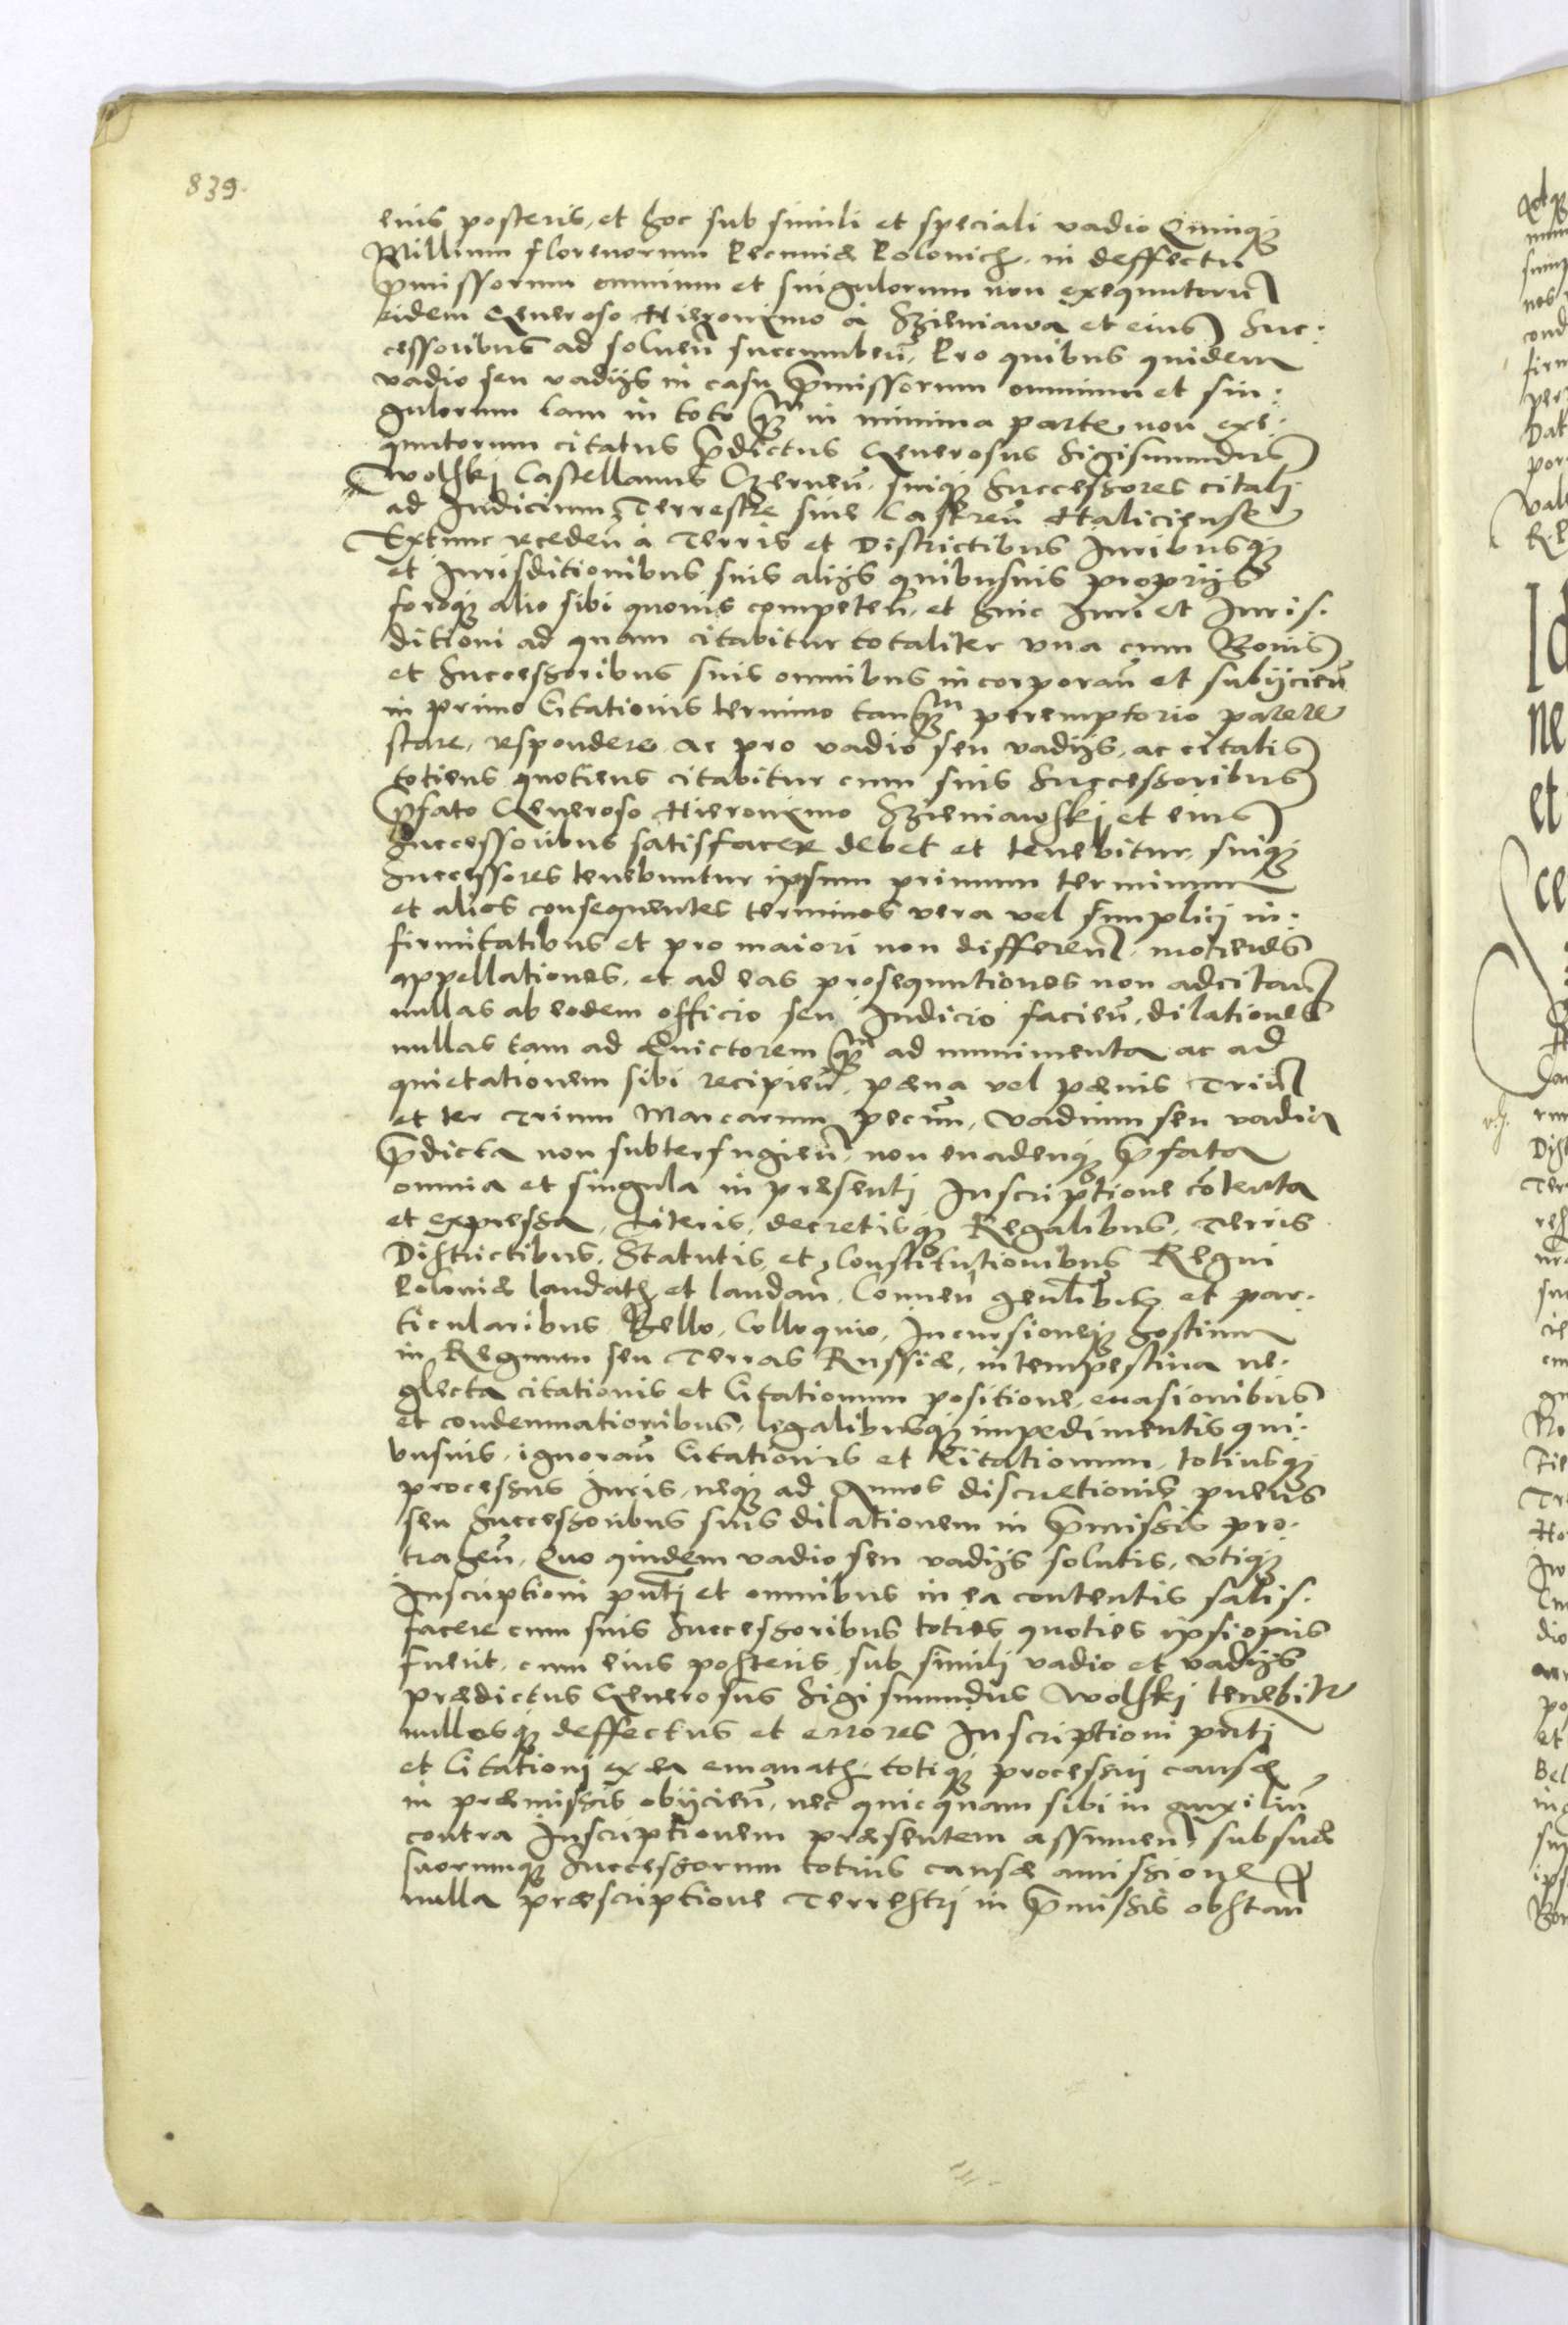 839.
eius posteris, et hoc sub simili et speciali vadio Quinq3
Millium florenorum Pecuniæ Polonich. in deffectu
p̄missorum omnium et singulorum non exequutoru͂
eidem Generoso Hieronimo á Szieniawa et eius Suc:
cessoribus ad soluen͂ succumben͂. Pro quibus quidem
vadio seu vadijs in casu p̄missorum omnium et sin:
gulorum tam in toto q̃3 in minima parte, non exe:
quutorum citatus p̄dictus Generosus Sigismundus
Wolskj Castellanus Czernen͂. suiq3 Successores citati
ad Iudicium Terrestre siue Castren͂ Haliciense
Extunc receden͂ á Terris et Districtibus Iuribusq3
et Iurisditionibus suis alijs quibusuis proprijs
foroq3 alio sibi quouis competen͂, et huic Iuri et Iuris.
ditioni ad quam citabitur totaliter vna cum Bonis
et Successoribus suis omnibus incorporan͂ et subijcien͂
in primo Citationis termino tanq̃3 peremptorio parere
stare, respondere ac pro vadio seu vadijs, ac citatis
totiens quotiens citabitur cum suis Successoribus
p̄fato Generoso Hieronimo Szieniawskj et eius
Successoribus satisfacere debet et tenebitur, suiq3
Successores tenebuntur ipsum primum terminum
et alios consequentes terminos vera vel simplicj in:
firmitatibus et pro maiori non differen͂, motiones
appellationes, et ad eas prosequutiones non adcitan͂
nullas ab eodem officio seu Iudicio facien͂, dilationes
nullas tam ad Euictorem q̃3 ad munimenta ac ad
quietationem sibi recipien͂, pæna vel pænis Triu͂
et ter Trium Marcarum pecun͂, vadium seu vadia
p̄dicta non subterfugien͂, non euadenq3 p̄fata
omnia et singula in præsentj Inscriptione co͂tenta
et expressa, Literis, decretisq3 Regalibus, Terris
Districtibus, Statutis, et Constitutionibus Regni
Poloniæ laudath et laudan͂, Conuen͂ gen͂libus et par:
ticularibus, Bello, Colloquio, Incursioneq3 hostium
in Regnum seu Terras Russiæ, intempestiua ne:
glecta citationis et Citationum positione, euasionibus
et condemnationibus, legalibusq3 impedimentis qui:
busuis, ignoran͂ Citationis et Citationum, totiusq3
processus Iuris, neq3 ad Annos discretionis pueris
seu Successoribus suis dilationem in p̄missis pro.
trahen͂. Quo quidem vadio seu vadijs solutis, vtiq3
Inscriptioni pn͂tj et omnibus in ea contentis satis.
facere cum suis Successoribus toties quoties ipsi opus
fuerit, cum eius posteris, sub similj vadio et vadijs
prædictus Generosus Sigismundus Wolskj tenebitr
nullosq3 deffectus et errores Inscriptioni pn͂tj
et Citationj ex ea emanath. totiq3 processuj causæ
in præmissis obijcien͂, nec quicquam sibi in auxiliu͂
contra Inscriptionem præsentem assumen͂, sub suæ
suorumq3 Successorum totius causæ amissione
nulla præscriptione Terrestrj in p̄missis obstan͂